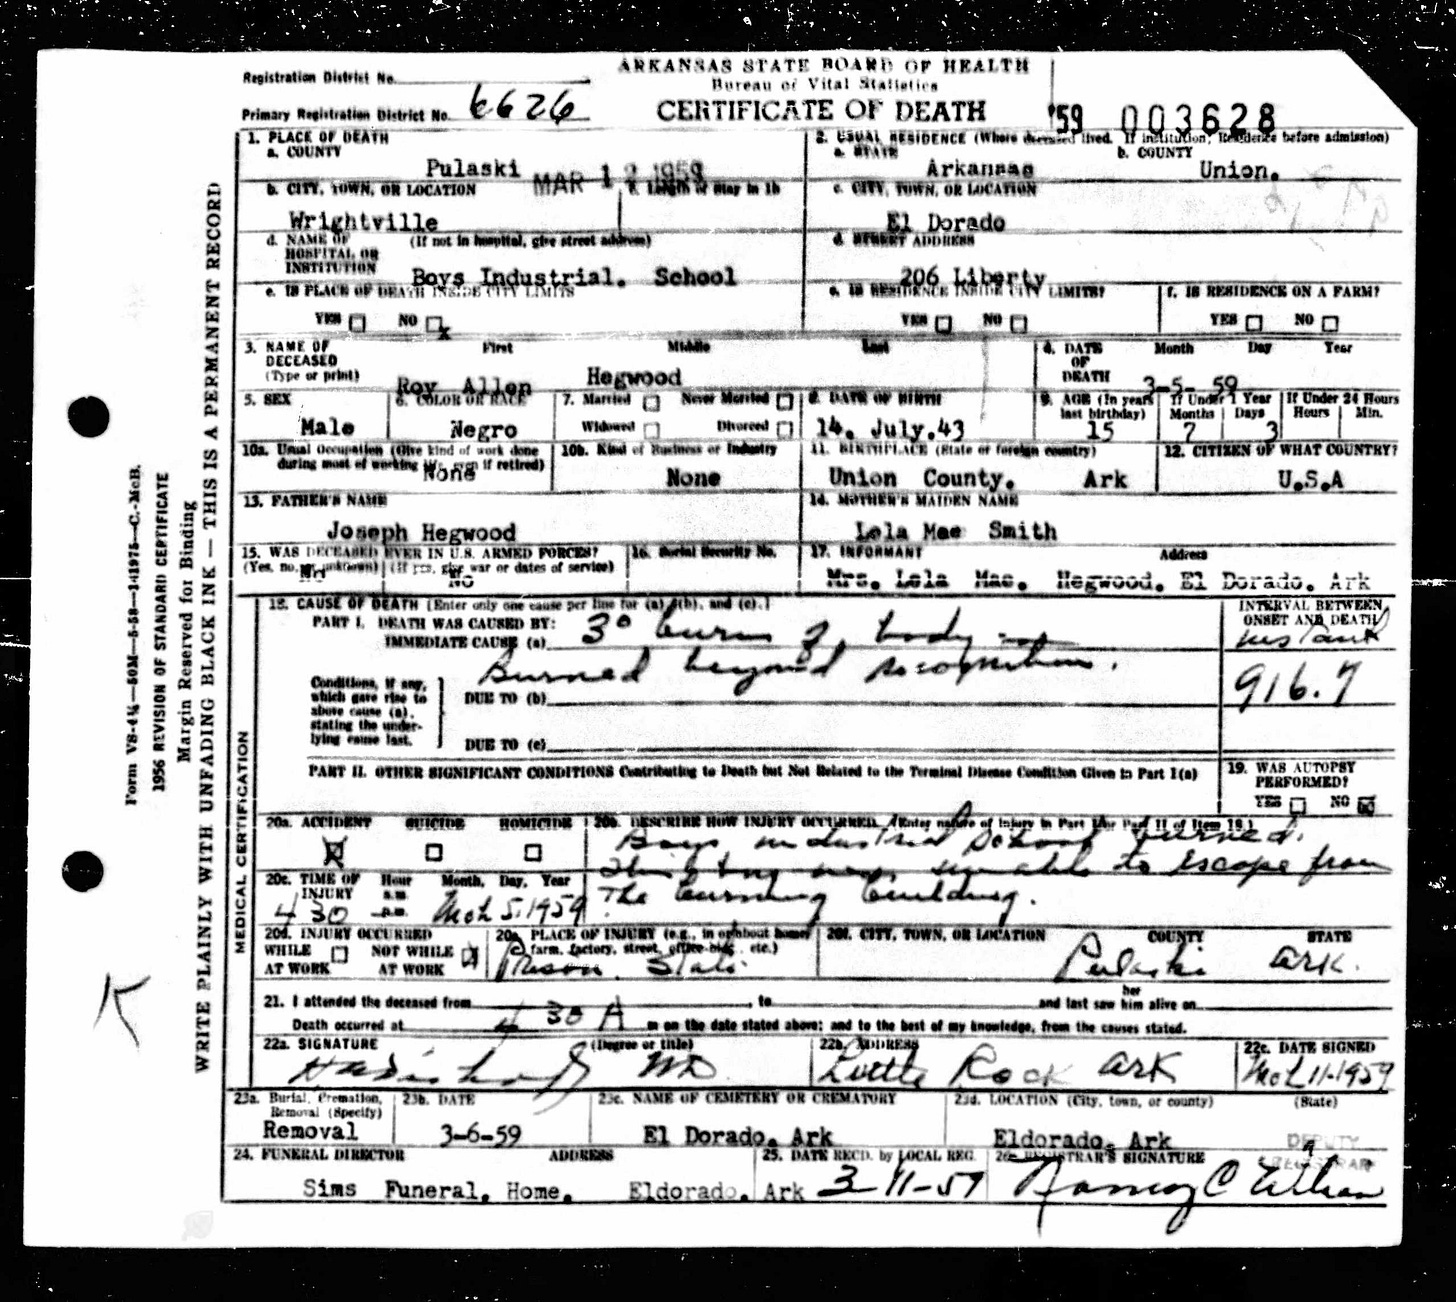 ARKANSAS STATE BOARD OF HEALTH
Bureau of Vital Statistics
CERTIFICATE OF DEATH
Registration District No.
Primary Registration District No. 6626
'59 003628
1. PLACE OF DEATH
a. COUNTY
Pulaski
MAR 12 1959
b. CITY, TOWN, OR LOCATION
c. Length of Stay in 1b
Wrightville
d. NAME OF HOSPITAL OR INSTITUTION (If not in hospital, give street address)
Boys Industrial. School
e. IS PLACE OF DEATH INSIDE CITY LIMITS
YES NO x
2. USUAL RESIDENCE (Where deceased lived. If institution; Residence before admission)
a. STATE
Arkansas
b. COUNTY
Union.
c. CITY, TOWN, OR LOCATION
El Dorado
d. STREET ADDRESS
206 Liberty
e. IS RESIDENCE INSIDE CITY LIMITS?
YES NO
f. IS RESIDENCE ON A FARM?
YES NO
3. NAME OF DECEASED (Type or print)
First Middle Last
Roy Allen Hegwood
4. DATE OF DEATH Month Day Year
3-5- 59
5. SEX
Male
6. COLOR OR RACE
Negro
7. Married Never Married
Widowed Divorced
8. DATE OF BIRTH
14. July.43
9. AGE (In years last birthday)
15
If Under 1 Year
Months Days
7 3
If Under 24 Hours
Hours Min.
10a. Usual Occupation (Give kind of work done during most of working life, even if retired)
None
10b. Kind of Business or Industry
None
11. BIRTHPLACE (State or foreign country)
Union County. Ark
12. CITIZEN OF WHAT COUNTRY?
U.S.A
13. FATHER'S NAME
Joseph Hegwood
14. MOTHER'S MAIDEN NAME
Lela Mae Smith
15. WAS DECEASED EVER IN U.S. ARMED FORCES?
(Yes, no, or unknown) (If yes, give war or dates of service)
No No
16. Social Security No.
17. INFORMANT Address
Mrs. Lela Mae. Hegwood. El Dorado. Ark
18. CAUSE OF DEATH [Enter only one cause per line for (a), (b), and (c).]
PART I. DEATH WAS CAUSED BY:
IMMEDIATE CAUSE (a) 3° burn of body
Burned beyond recognition.
INTERVAL BETWEEN ONSET AND DEATH
instant
916.7
Conditions, if any, which gave rise to above cause (a), stating the underlying cause last.
DUE TO (b)
DUE TO (c)
PART II. OTHER SIGNIFICANT CONDITIONS Contributing to Death but Not Related to the Terminal Disease Condition Given in Part I(a)
19. WAS AUTOPSY PERFORMED?
YES NO
20a. ACCIDENT SUICIDE HOMICIDE
20b. DESCRIBE HOW INJURY OCCURRED. (Enter nature of injury in Part I or Part II of Item 18.)
Boys industrial School burned.
This boy was unable to escape from
the burning building.
20c. TIME OF INJURY Hour a.m. p.m. Month, Day, Year
4 30 Mch 5, 1959
20d. INJURY OCCURRED
WHILE AT WORK NOT WHILE AT WORK
20e. PLACE OF INJURY (e.g., in or about home, farm, factory, street, office bldg., etc.)
Prison. State
20f. CITY, TOWN, OR LOCATION COUNTY STATE
Pulaski Ark.
21. I attended the deceased from , to and last saw her him alive on
Death occurred at 4 30 A m on the date stated above; and to the best of my knowledge, from the causes stated.
22a. SIGNATURE (Degree or title)
MD
22b. ADDRESS
Little Rock Ark
22c. DATE SIGNED
Mch 11-1959
23a. Burial, Cremation, Removal (Specify)
Removal
23b. DATE
3-6-59
23c. NAME OF CEMETERY OR CREMATORY
El Dorado. Ark
23d. LOCATION (City, town, or county) (State)
Eldorado. Ark
24. FUNERAL DIRECTOR ADDRESS
Sims Funeral. Home. Eldorado. Ark
25. DATE RECD. by LOCAL REG.
3-11-59
26. REGISTRAR'S SIGNATURE
DEPUTY REGISTRAR
MEDICAL CERTIFICATION
WRITE PLAINLY WITH UNFADING BLACK INK — THIS IS A PERMANENT RECORD
Margin Reserved for Binding
1956 REVISION OF STANDARD CERTIFICATE
K